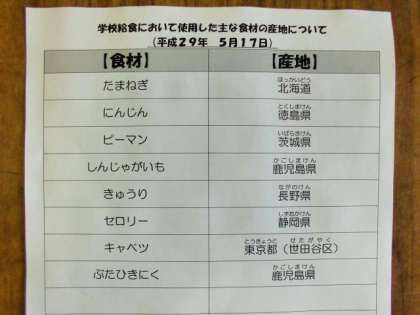 学校給食において使用した主な食材の産地について
（平成２９年　５月１７日）
【食材】　【産地】
たまねぎ　北海道
ほっかいどう
にんじん　徳島県
とくしまけん
ピーマン　茨城県
いばらきけん
しんじゃがいも　鹿児島県
かごしまけん
きゅうり　長野県
ながのけん
セロリー　静岡県
しずおかけん
キャベツ　東京都（世田谷区）
とうきょうと　せたがやく
ぶたひきにく　鹿児島県
かごしまけん